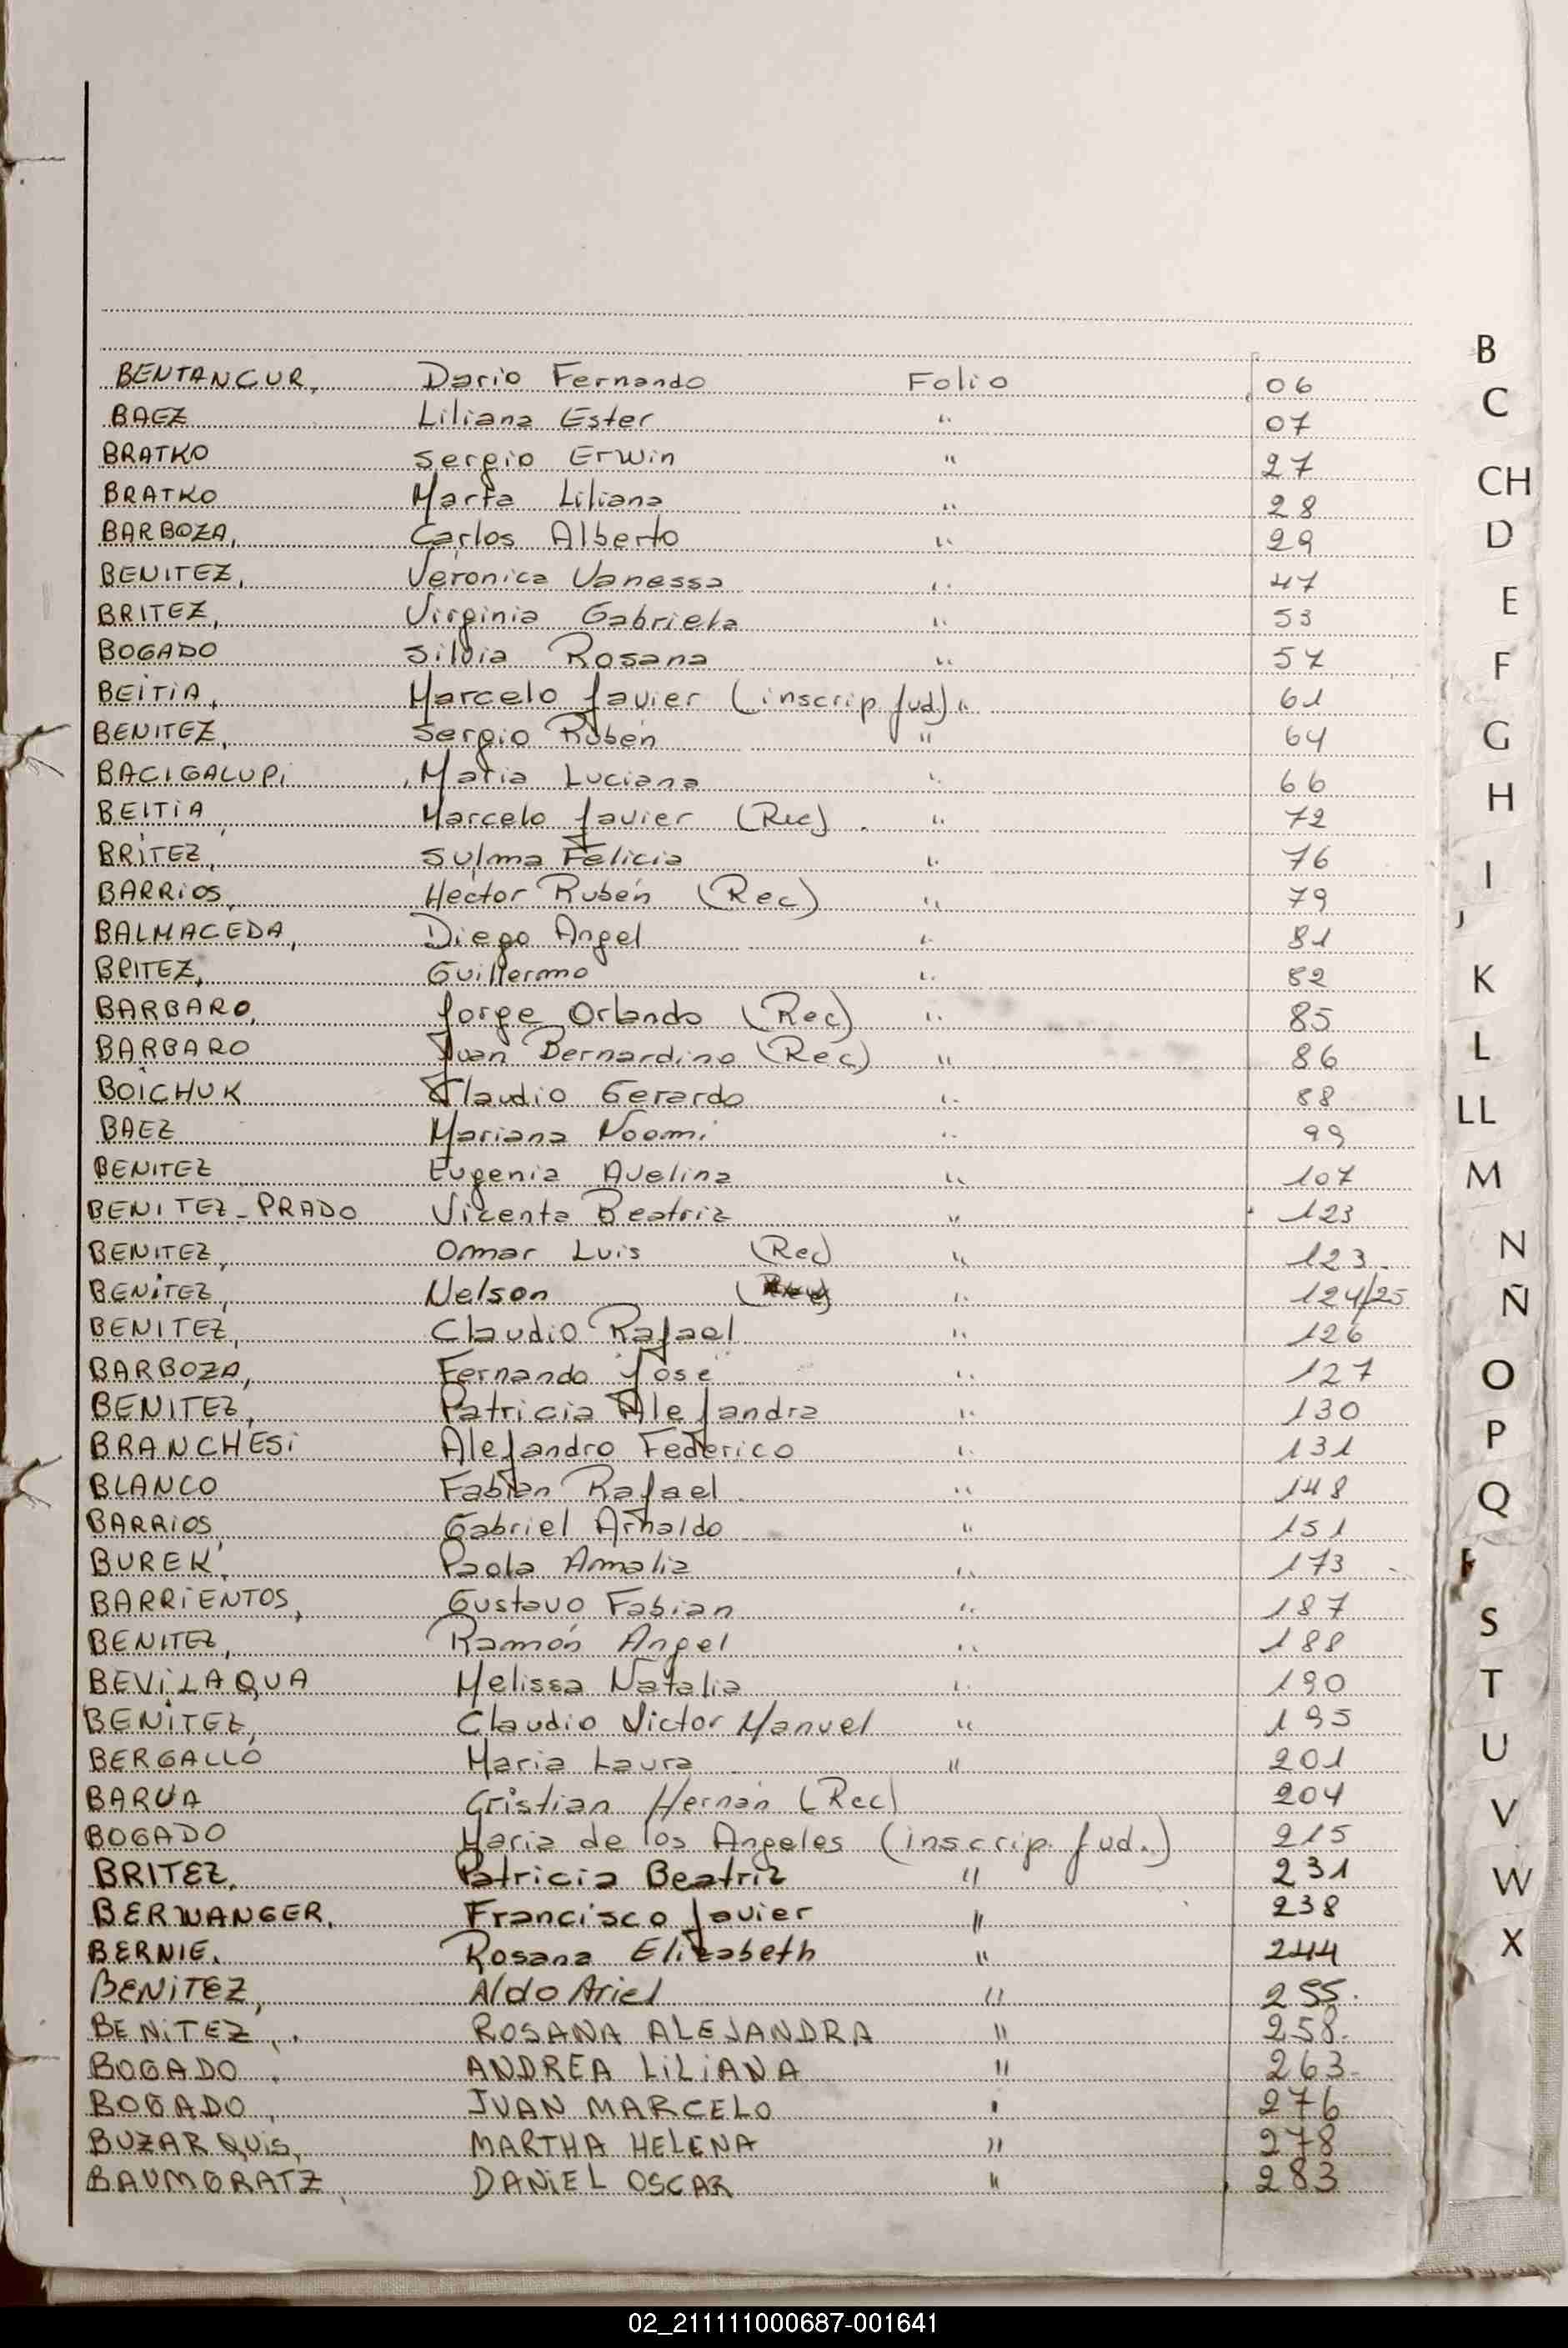 BENTANCUR, Dario Fernando Folio 06
BAEZ Liliana Ester " 07
BRATKO Sergio Erwin " 27
BRATKO Marta Liliana " 28
BARBOZA, Carlos Alberto " 29
BENITEZ, Veronica Vanessa " 47
BRITEZ, Virginia Gabriela " 53
BOGADO Silvia Rosana " 57
BEITIA, Marcelo Javier (inscrip Jud) " 61
BENITEZ, Sergio Rubén " 64
BACIGALUPI, Maria Luciana " 66
BEITIA, Marcelo Javier (Rec) " 72
BRITEZ, Sulma Felicia " 76
BARRIOS, Hector Rubén (Rec) " 79
BALMACEDA, Diego Angel " 81
BRITEZ, Guillermo " 82
BARBARO, Jorge Orlando (Rec) " 85
BARBARO Juan Bernardino (Rec) " 86
BOICHUK Claudio Gerardo " 88
BAEZ Mariana Noemi " 99
BENITEZ Eugenia Avelina " 107
BENITEZ-PRADO Vicenta Beatriz " 123
BENITEZ, Omar Luis (Rec) " 123
BENITEZ, Nelson " 124/25
BENITEZ, Claudio Rafael " 126
BARBOZA, Fernando José " 127
BENITEZ, Patricia Alejandra " 130
BRANCHESI Alejandro Federico " 131
BLANCO Fabian Rafael " 148
BARRIOS Gabriel Arnaldo " 151
BUREK, Paola Amalia " 173
BARRIENTOS, Gustavo Fabian " 187
BENITEZ, Ramón Angel " 188
BEVILAQUA Melissa Natalia " 190
BENITEZ, Claudio Victor Manuel " 195
BERGALLO Maria Laura " 201
BARUA Cristian Hernán (Rec) 204
BOGADO Maria de los Angeles (inscrip. Jud.) 215
BRITEZ. Patricia Beatriz " 231
BERWANGER. Francisco Javier " 238
BERNIE. Rosana Elizabeth " 244
BENITEZ, Aldo Ariel " 255.
BENITEZ, ROSANA ALEJANDRA " 258.
BOGADO, ANDREA LILIANA " 263-
BOGADO, JUAN MARCELO " 276
BUZARQUIS, MARTHA HELENA " 278
BAUMGRATZ, DANIEL OSCAR " 283
B
C
CH
D
E
F
G
H
I
J
K
L
LL
M
N
Ñ
O
P
Q
S
T
U
V
W
X
02_211111000687-001641